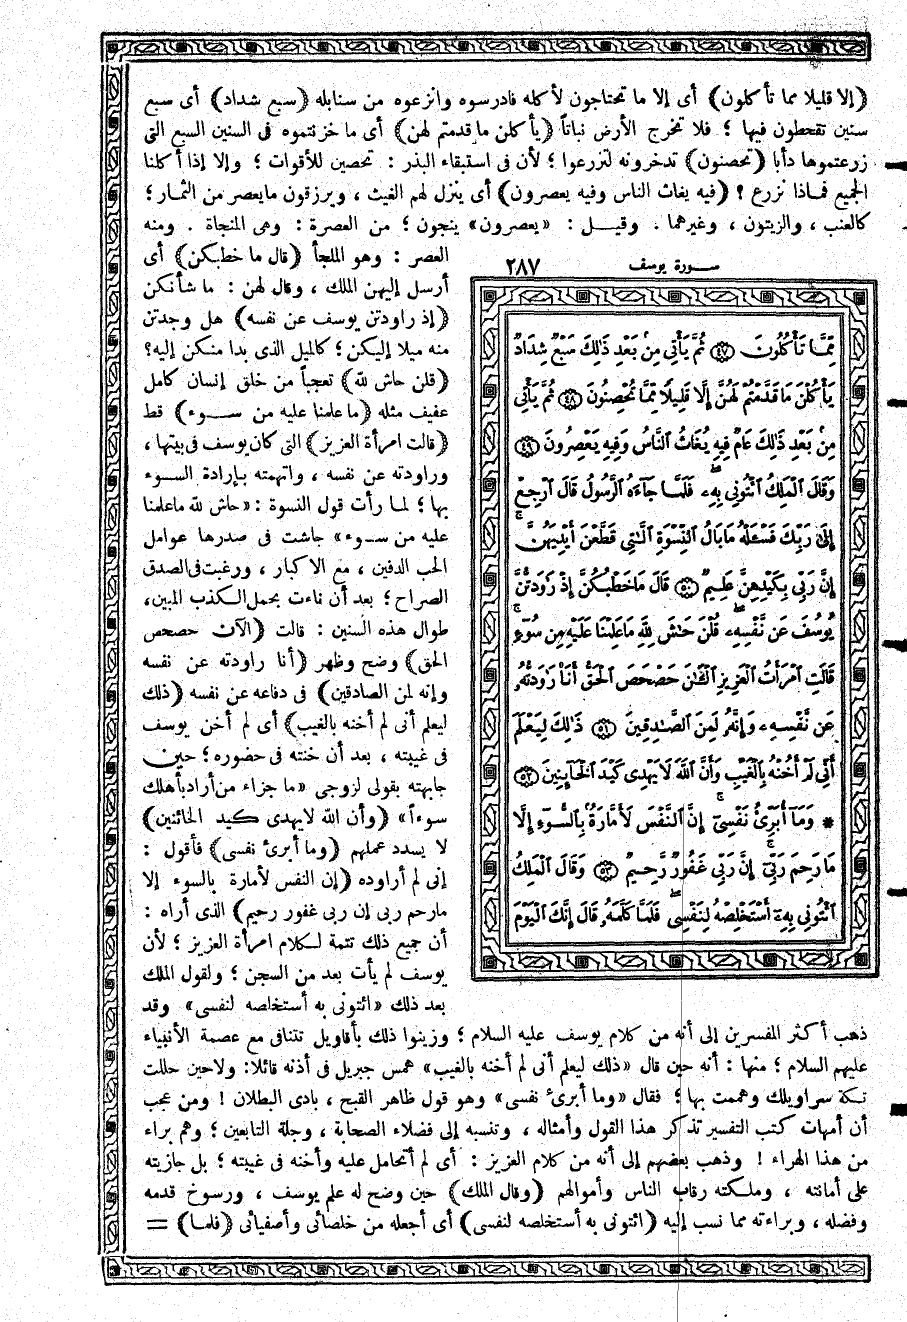 (إلا قليلا مما تأكلون) أى إلا ما تحتاجون لأكله فادرسوه وانزعوه من سنابله (سبع شداد) أى سبع
سنين تقحطون فيها ؛ فلا تخرج الأرض نباتاً (يأكلن ما قدمتم لهن) أى ما خزنتموه فى السنين السبع التى
زرعتموها دأبا (تحصنون) تدخرونه لتزرعوا ؛ لأن فى استبقاء البذر : تحصين للأقوات ؛ وإلا إذا أكلنا
الجميع فماذا نزرع ؟ (فيه يغاث الناس وفيه يعصرون) أى ينزل لهم الغيث ، ويرزقون مايعصر من الثمار ؛
كالعنب ، والزيتون ، وغيرهما . وقيل : «يعصرون» ينجون ؛ من العصرة : وهى المنجاة . ومنه
العصر : وهو الملجأ (قال ما خطبكن) أى
أرسل إليهن الملك ، وقال لهن : ما شأنكن
(إذ راودتن يوسف عن نفسه) هل وجدتن
منه ميلا إليكن ؛ كالميل الذى بدا منكن إليه؟
(قلن حاش لله) تعجباً من خلق إنسان كامل
عفيف مثله (ما علمنا عليه من سوء) قط
(قالت امرأة العزيز) التى كان يوسف فى بيتها ،
وراودته عن نفسه ، واتهمته بإرادة السوء
بها ؛ لما رأت قول النسوة : «حاش لله ماعلمنا
عليه من سوء» جاشت فى صدرها عوامل
الحب الدفين ، مع الاكبار ، ورغبت فى الصدق
الصراح ؛ بعد أن ناءت بحمل الكذب المبين،
طوال هذه السنين : قالت (الآن حصحص
الحق) وضح وظهر (أنا راودته عن نفسه
وإنه لمن الصادقين) فى دفاعه عن نفسه (ذلك
ليعلم أنى لم أخنه بالغيب) أى لم أخن يوسف
فى غيبته ، بعد أن خنته فى حضوره ؛ حين
جابهته بقولى لزوجى «ما جزاء من أراد بأهلك
سوءاً» (وأن الله لايهدى كيد الخائنين)
لا يسدد عملهم (وما أبرئ نفسى) فأقول :
إنى لم أراوده (إن النفس لأمارة بالسوء إلا
مارحم ربى إن ربى غفور رحيم) الذى أراه :
أن جميع ذلك تتمة لكلام امرأة العزيز ؛ لأن
يوسف لم يأت بعد من السجن ؛ ولقول الملك
بعد ذلك «ائتونى به أستخلصه لنفسى» وقد
سورة يوسف ٢٨٧
مِّمَّا تَأْكُلُونَ ۝٤٧ ثُمَّ يَأْتِى مِنۢ بَعْدِ ذَٰلِكَ سَبْعٌ شِدَادٌ
يَأْكُلْنَ مَا قَدَّمْتُمْ لَهُنَّ إِلَّا قَلِيلًا مِّمَّا تُحْصِنُونَ ۝٤٨ ثُمَّ يَأْتِى
مِنۢ بَعْدِ ذَٰلِكَ عَامٌ فِيهِ يُغَاثُ ٱلنَّاسُ وَفِيهِ يَعْصِرُونَ ۝٤٩
وَقَالَ ٱلْمَلِكُ ٱئْتُونِى بِهِۦ ۖ فَلَمَّا جَآءَهُ ٱلرَّسُولُ قَالَ ٱرْجِعْ
إِلَىٰ رَبِّكَ فَسْـَٔلْهُ مَا بَالُ ٱلنِّسْوَةِ ٱلَّٰتِى قَطَّعْنَ أَيْدِيَهُنَّ ۚ
إِنَّ رَبِّى بِكَيْدِهِنَّ عَلِيمٌ ۝٥٠ قَالَ مَا خَطْبُكُنَّ إِذْ رَٰوَدتُّنَّ
يُوسُفَ عَن نَّفْسِهِۦ ۚ قُلْنَ حَٰشَ لِلَّهِ مَا عَلِمْنَا عَلَيْهِ مِن سُوٓءٍ ۚ
قَالَتِ ٱمْرَأَتُ ٱلْعَزِيزِ ٱلْـَٰٔنَ حَصْحَصَ ٱلْحَقُّ أَنَا۠ رَٰوَدتُّهُۥ
عَن نَّفْسِهِۦ وَإِنَّهُۥ لَمِنَ ٱلصَّٰدِقِينَ ۝٥١ ذَٰلِكَ لِيَعْلَمَ
أَنِّى لَمْ أَخُنْهُ بِٱلْغَيْبِ وَأَنَّ ٱللَّهَ لَا يَهْدِى كَيْدَ ٱلْخَآئِنِينَ ۝٥٢
* وَمَآ أُبَرِّئُ نَفْسِىٓ ۚ إِنَّ ٱلنَّفْسَ لَأَمَّارَةٌۢ بِٱلسُّوٓءِ إِلَّا
مَا رَحِمَ رَبِّىٓ ۚ إِنَّ رَبِّى غَفُورٌ رَّحِيمٌ ۝٥٣ وَقَالَ ٱلْمَلِكُ
ٱئْتُونِى بِهِۦٓ أَسْتَخْلِصْهُ لِنَفْسِى ۖ فَلَمَّا كَلَّمَهُۥ قَالَ إِنَّكَ ٱلْيَوْمَ
ذهب أكثر المفسرين إلى أنه من كلام يوسف عليه السلام ؛ وزينوا ذلك بأقاويل تتنافى مع عصمة الأنبياء
عليهم السلام ؛ منها : أنه حين قال «ذلك ليعلم أنى لم أخنه بالغيب» همس جبريل فى أذنه قائلا: ولاحين حللت
تكة سراويلك وهممت بها ؛ فقال «وما أبرئ نفسى» وهو قول ظاهر القبح ، بادى البطلان ! ومن عجب
أن أمهات كتب التفسير تذكر هذا القول وأمثاله ، وتنسبه إلى فضلاء الصحابة ، وجلة التابعين ؛ وهم براء
من هذا الهراء ! وذهب بعضهم إلى أنه من كلام العزيز : أى لم أتحامل عليه وأخنه فى غيبته ؛ بل جازيته
على أمانته ، وملكته رقاب الناس وأموالهم (وقال الملك) حين وضح له علم يوسف ، ورسوخ قدمه
وفضله ، وبراءته مما نسب إليه (ائتونى به أستخلصه لنفسى) أى أجعله من خلصائى وأصفيائى (فلما) =